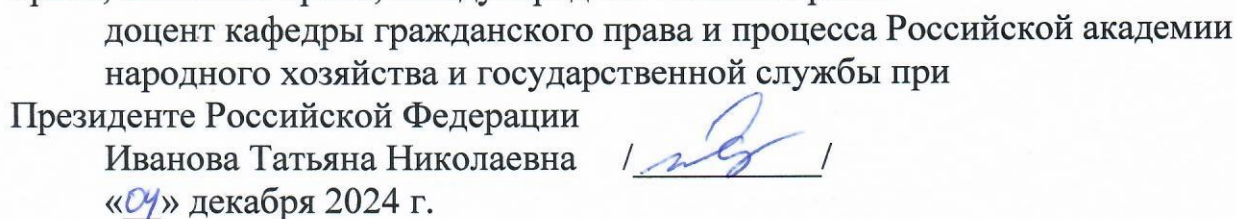 доцент кафедры гражданского права и процесса Российской академии
народного хозяйства и государственной службы при
Президенте Российской Федерации
Иванова Татьяна Николаевна / /
«04» декабря 2024 г.